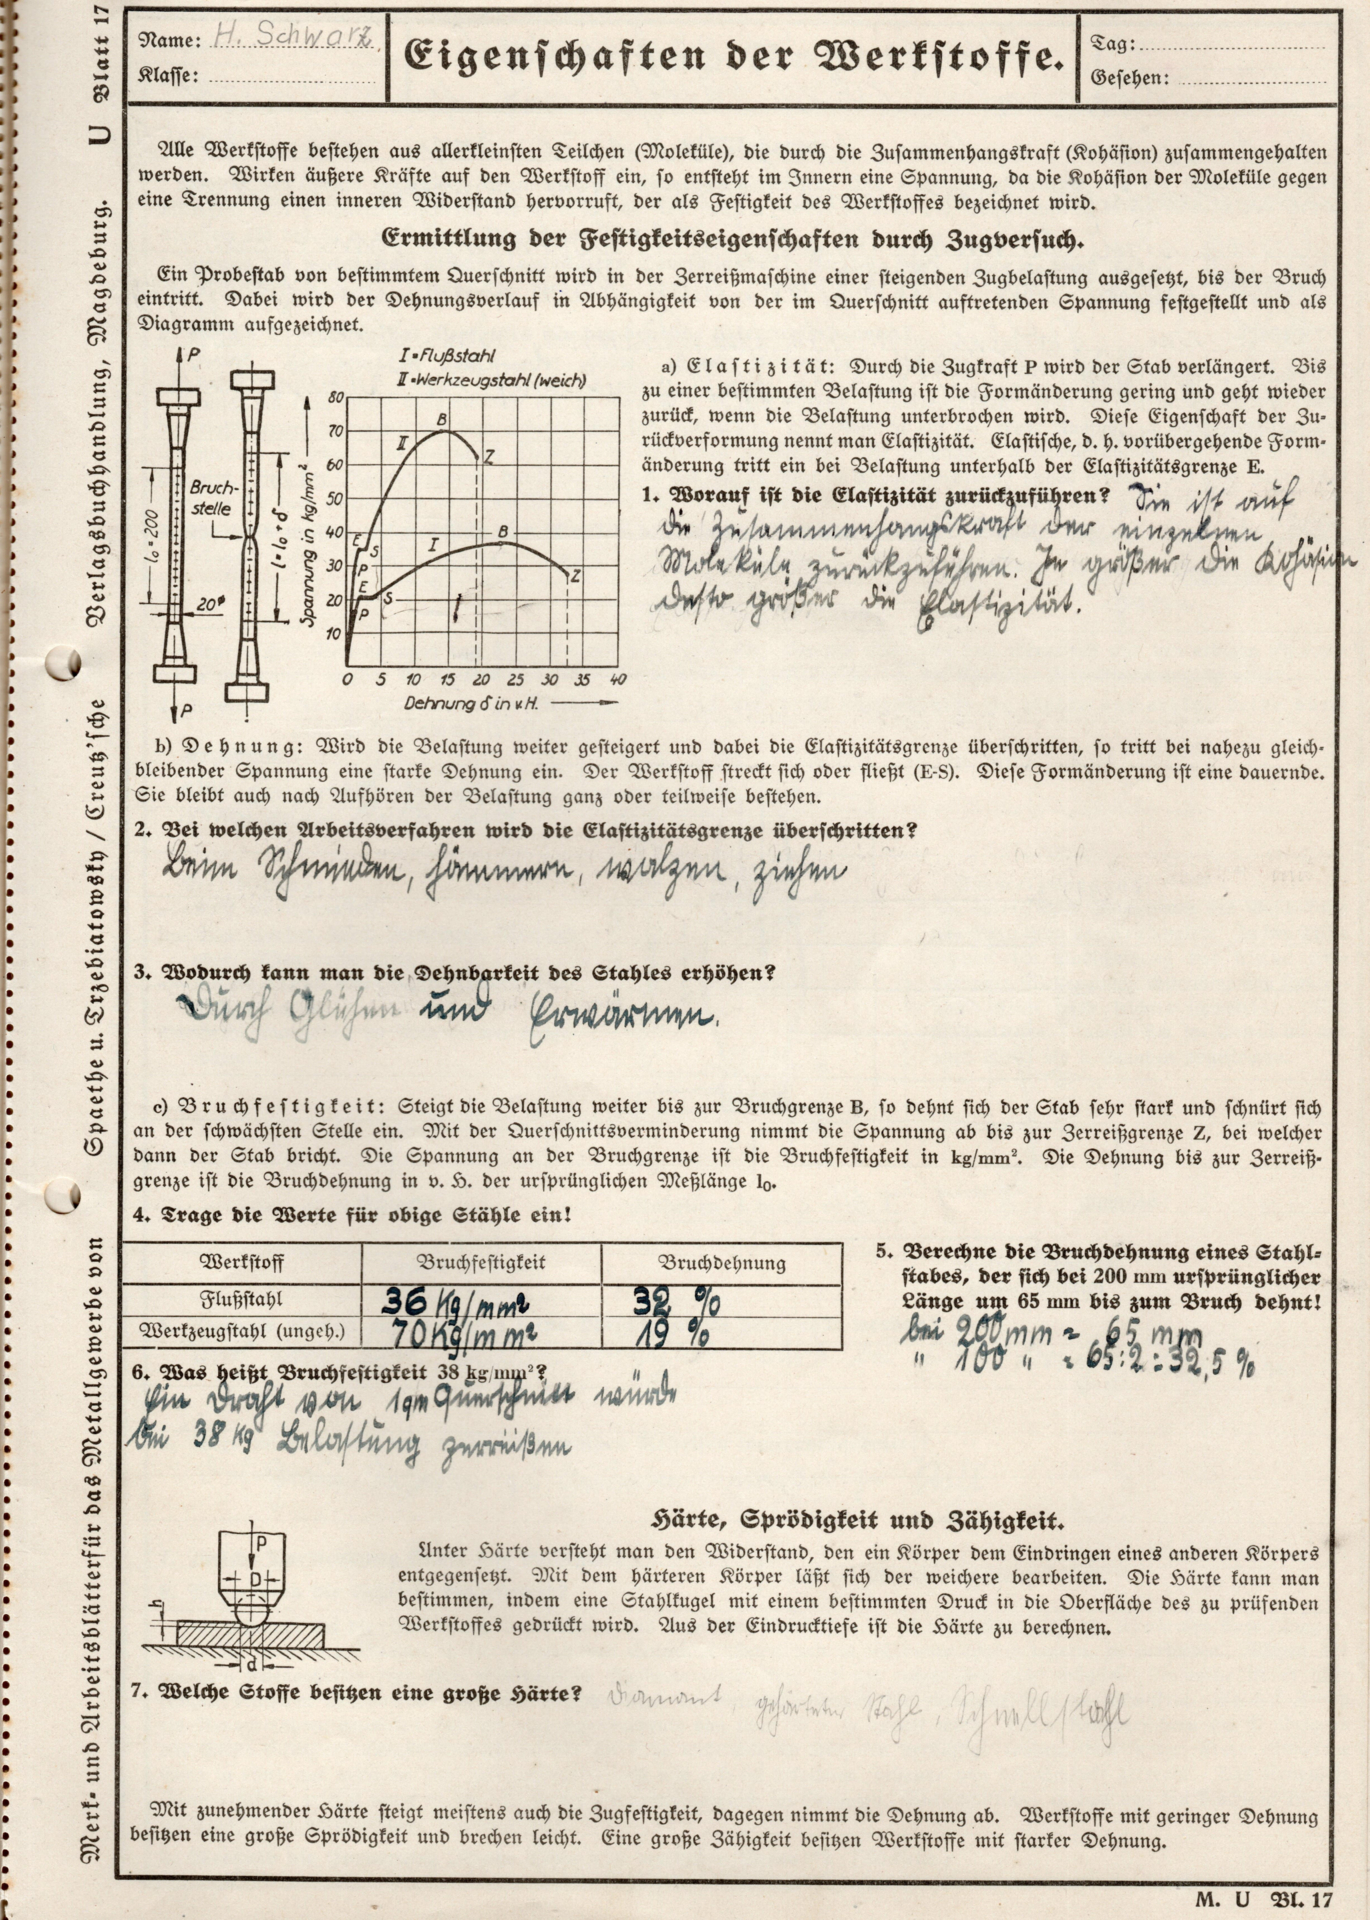 Name: H. Schwarz
Klasse:
Eigenschaften der Werkstoffe.
Tag:
Gesehen:
Alle Werkstoffe bestehen aus allerkleinsten Teilchen (Moleküle), die durch die Zusammenhangskraft (Kohäsion) zusammengehalten
werden. Wirken äußere Kräfte auf den Werkstoff ein, so entsteht im Innern eine Spannung, da die Kohäsion der Moleküle gegen
eine Trennung einen inneren Widerstand hervorruft, der als Festigkeit des Werkstoffes bezeichnet wird.
Ermittlung der Festigkeitseigenschaften durch Zugversuch.
Ein Probestab von bestimmtem Querschnitt wird in der Zerreißmaschine einer steigenden Zugbelastung ausgesetzt, bis der Bruch
eintritt. Dabei wird der Dehnungsverlauf in Abhängigkeit von der im Querschnitt auftretenden Spannung festgestellt und als
Diagramm aufgezeichnet.
P
l₀=200
20⌀
P
Bruch-
stelle
l=l₀+δ
I=Flußstahl
II=Werkzeugstahl (weich)
Spannung in kg/mm²
80
70
60
50
40
30
20
10
II B Z
E S
P
I B Z
E S
P
0 5 10 15 20 25 30 35 40
Dehnung δ in v.H.
a) Elastizität: Durch die Zugkraft P wird der Stab verlängert. Bis
zu einer bestimmten Belastung ist die Formänderung gering und geht wieder
zurück, wenn die Belastung unterbrochen wird. Diese Eigenschaft der Zu-
rückverformung nennt man Elastizität. Elastische, d. h. vorübergehende Form-
änderung tritt ein bei Belastung unterhalb der Elastizitätsgrenze E.
1. Worauf ist die Elastizität zurückzuführen? Sie ist auf
die Zusammenhangskraft der einzelnen
Moleküle zurückzuführen. Je größer die Kohäsion
desto größer die Elastizität.
b) Dehnung: Wird die Belastung weiter gesteigert und dabei die Elastizitätsgrenze überschritten, so tritt bei nahezu gleich-
bleibender Spannung eine starke Dehnung ein. Der Werkstoff streckt sich oder fließt (E-S). Diese Formänderung ist eine dauernde.
Sie bleibt auch nach Aufhören der Belastung ganz oder teilweise bestehen.
2. Bei welchen Arbeitsverfahren wird die Elastizitätsgrenze überschritten?
Beim Schmieden, hämmern, walzen, ziehen
3. Wodurch kann man die Dehnbarkeit des Stahles erhöhen?
Durch Glühen und Erwärmen.
c) Bruchfestigkeit: Steigt die Belastung weiter bis zur Bruchgrenze B, so dehnt sich der Stab sehr stark und schnürt sich
an der schwächsten Stelle ein. Mit der Querschnittsverminderung nimmt die Spannung ab bis zur Zerreißgrenze Z, bei welcher
dann der Stab bricht. Die Spannung an der Bruchgrenze ist die Bruchfestigkeit in kg/mm². Die Dehnung bis zur Zerreiß-
grenze ist die Bruchdehnung in v. H. der ursprünglichen Meßlänge l₀.
4. Trage die Werte für obige Stähle ein!
Werkstoff Bruchfestigkeit Bruchdehnung
Flußstahl 36 Kg/mm² 32 %
Werkzeugstahl (ungeh.) 70 Kg/mm² 19 %
5. Berechne die Bruchdehnung eines Stahl-
stabes, der sich bei 200 mm ursprünglicher
Länge um 65 mm bis zum Bruch dehnt!
bei 200 mm = 65 mm
" 100 " = 65:2 = 32,5 %
6. Was heißt Bruchfestigkeit 38 kg/mm²?
Ein Draht von 1qm Querschnitt würde
bei 38 Kg Belastung zerreißen
Härte, Sprödigkeit und Zähigkeit.
P
D
h
d
Unter Härte versteht man den Widerstand, den ein Körper dem Eindringen eines anderen Körpers
entgegensetzt. Mit dem härteren Körper läßt sich der weichere bearbeiten. Die Härte kann man
bestimmen, indem eine Stahlkugel mit einem bestimmten Druck in die Oberfläche des zu prüfenden
Werkstoffes gedrückt wird. Aus der Eindrucktiefe ist die Härte zu berechnen.
7. Welche Stoffe besitzen eine große Härte? Diamant, gehärteter Stahl, Schnellstahl
Mit zunehmender Härte steigt meistens auch die Zugfestigkeit, dagegen nimmt die Dehnung ab. Werkstoffe mit geringer Dehnung
besitzen eine große Sprödigkeit und brechen leicht. Eine große Zähigkeit besitzen Werkstoffe mit starker Dehnung.
M. U Bl. 17
Merk- und Arbeitsblätter für das Metallgewerbe von Spaethe u. Trzebiatowsky / Creutz'sche Verlagsbuchhandlung, Magdeburg. U Blatt 17